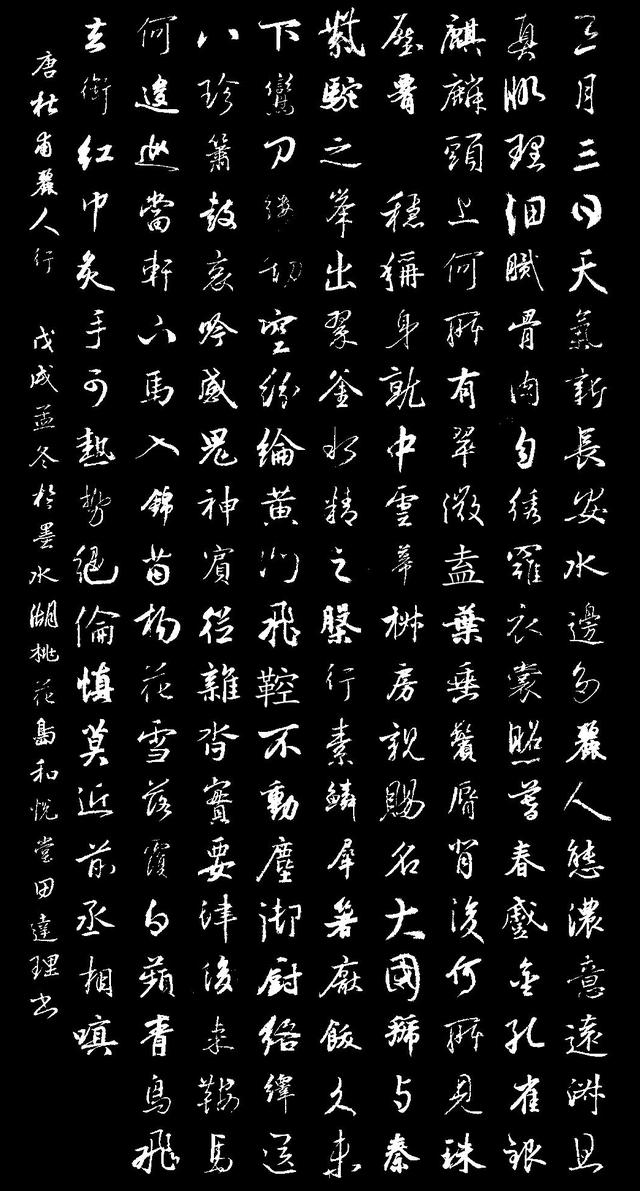 三月三日天氣新長安水邊多麗人態濃意遠淑且
真肌理細膩骨肉勻綉羅衣裳照暮春蹙金孔雀銀
麒麟頭上何所有翠微盍葉垂鬢脣背後何所見珠
壓 穩稱身就中雲幕椒房親賜名大國號与秦
紫駝之峯出翠釜水精之盤行素鱗犀箸厭飫久未
下鸞刀縷切空紛綸黃門飛鞚不動塵御厨絡繹送
八珍簫鼓哀吟感鬼神賓從雜沓實要津後来鞍馬
何逡巡當軒下馬入錦茵楊花雪落覆白蘋青鳥飛
去銜紅巾炙手可熱勢絕倫慎莫近前丞相嗔
唐杜甫麗人行 戊戌孟冬於墨水湖桃花島和悅堂田達理书